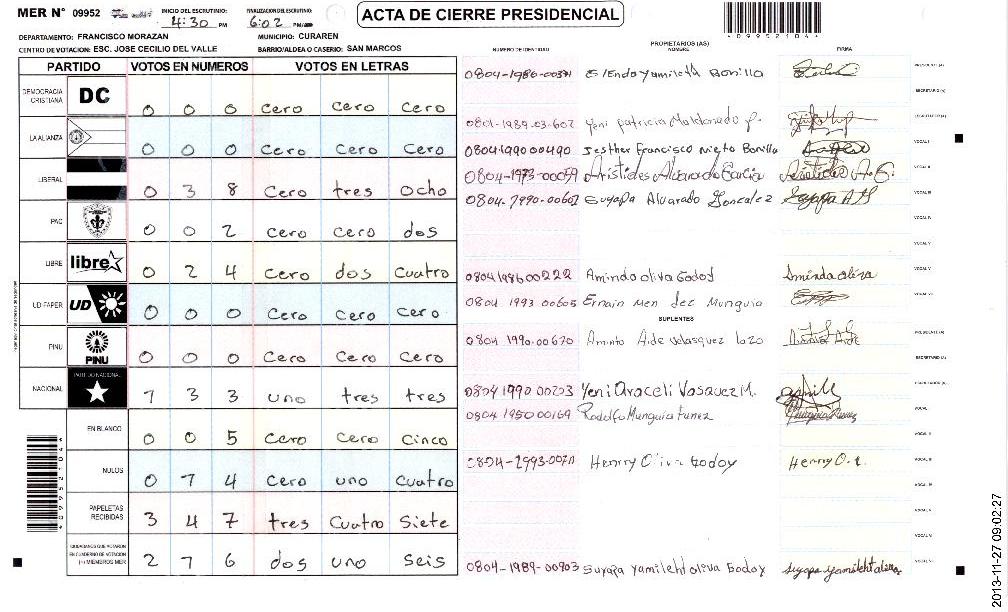 MER N° 09952 INICIO DEL ESCRUTINIO: 4:30 PM FINALIZACION DEL ESCRUTINIO: 6:02 PM
ACTA DE CIERRE PRESIDENCIAL
*09952104*
DEPARTAMENTO: FRANCISCO MORAZAN MUNICIPIO: CURAREN
CENTRO DE VOTACION: ESC. JOSE CECILIO DEL VALLE BARRIO/ALDEA O CASERIO: SAN MARCOS
PARTIDO VOTOS EN NUMEROS VOTOS EN LETRAS
DEMOCRACIA CRISTIANA DC 0 0 0 Cero Cero Cero
LA ALIANZA 0 0 0 Cero Cero Cero
LIBERAL 0 3 8 Cero tres Ocho
PAC 0 0 2 Cero Cero dos
LIBRE libre 0 2 4 Cero dos Cuatro
UD FAPER UD 0 0 0 Cero Cero Cero
PINU PINU 0 0 0 Cero Cero Cero
NACIONAL PARTIDO NACIONAL 1 3 3 uno tres tres
EN BLANCO 0 0 5 Cero Cero Cinco
NULOS 0 1 4 Cero uno Cuatro
PAPELETAS RECIBIDAS 3 4 7 tres Cuatro Siete
CIUDADANOS QUE VOTARON EN CUADERNO DE VOTACION (+) MIEMBROS MER 2 1 6 dos uno Seis
*09952104*
PROPIETARIOS (AS)
NUMERO DE IDENTIDAD NOMBRE FIRMA
Glenda yamileth Bonilla PRESIDENTE (A)
SECRETARIO (A)
0801-1989-03-602 Yeni patricia Maldonado p. ESCRUTADOR (A)
0804 1990 00490 Jesther Francisco Nieto Bonilla VOCAL I
0804-1973-00059 Aristides Alvarado Garcia Aristides A.G. VOCAL II
0804-1990-00602 Suyapa Alvarado Gonzalez Suyapa A G VOCAL III
VOCAL IV
VOCAL V
0804 1986 00222 Aminda oliva Godoy Aminda oliva VOCAL V
0804 1993 00605 Ernain Men dez Munguia
SUPLENTES
0804 1990-00670 Aminto Aide velasquez lazo PRESIDENTE (A)
SECRETARIO (A)
0804 1990 00203 Yeni Araceli Vasquez M. ESCRUTADOR (A)
0804 1950 00169 Rodolfo Munguia tunez VOCAL I
VOCAL II
Henrry Oliva Godoy Henrry O. VOCAL III
VOCAL IV
VOCAL V
0804-1989-00903 Suyapa yamileht oliva Godoy suyapa yamileht oliva
2013-11-27 09:02:27